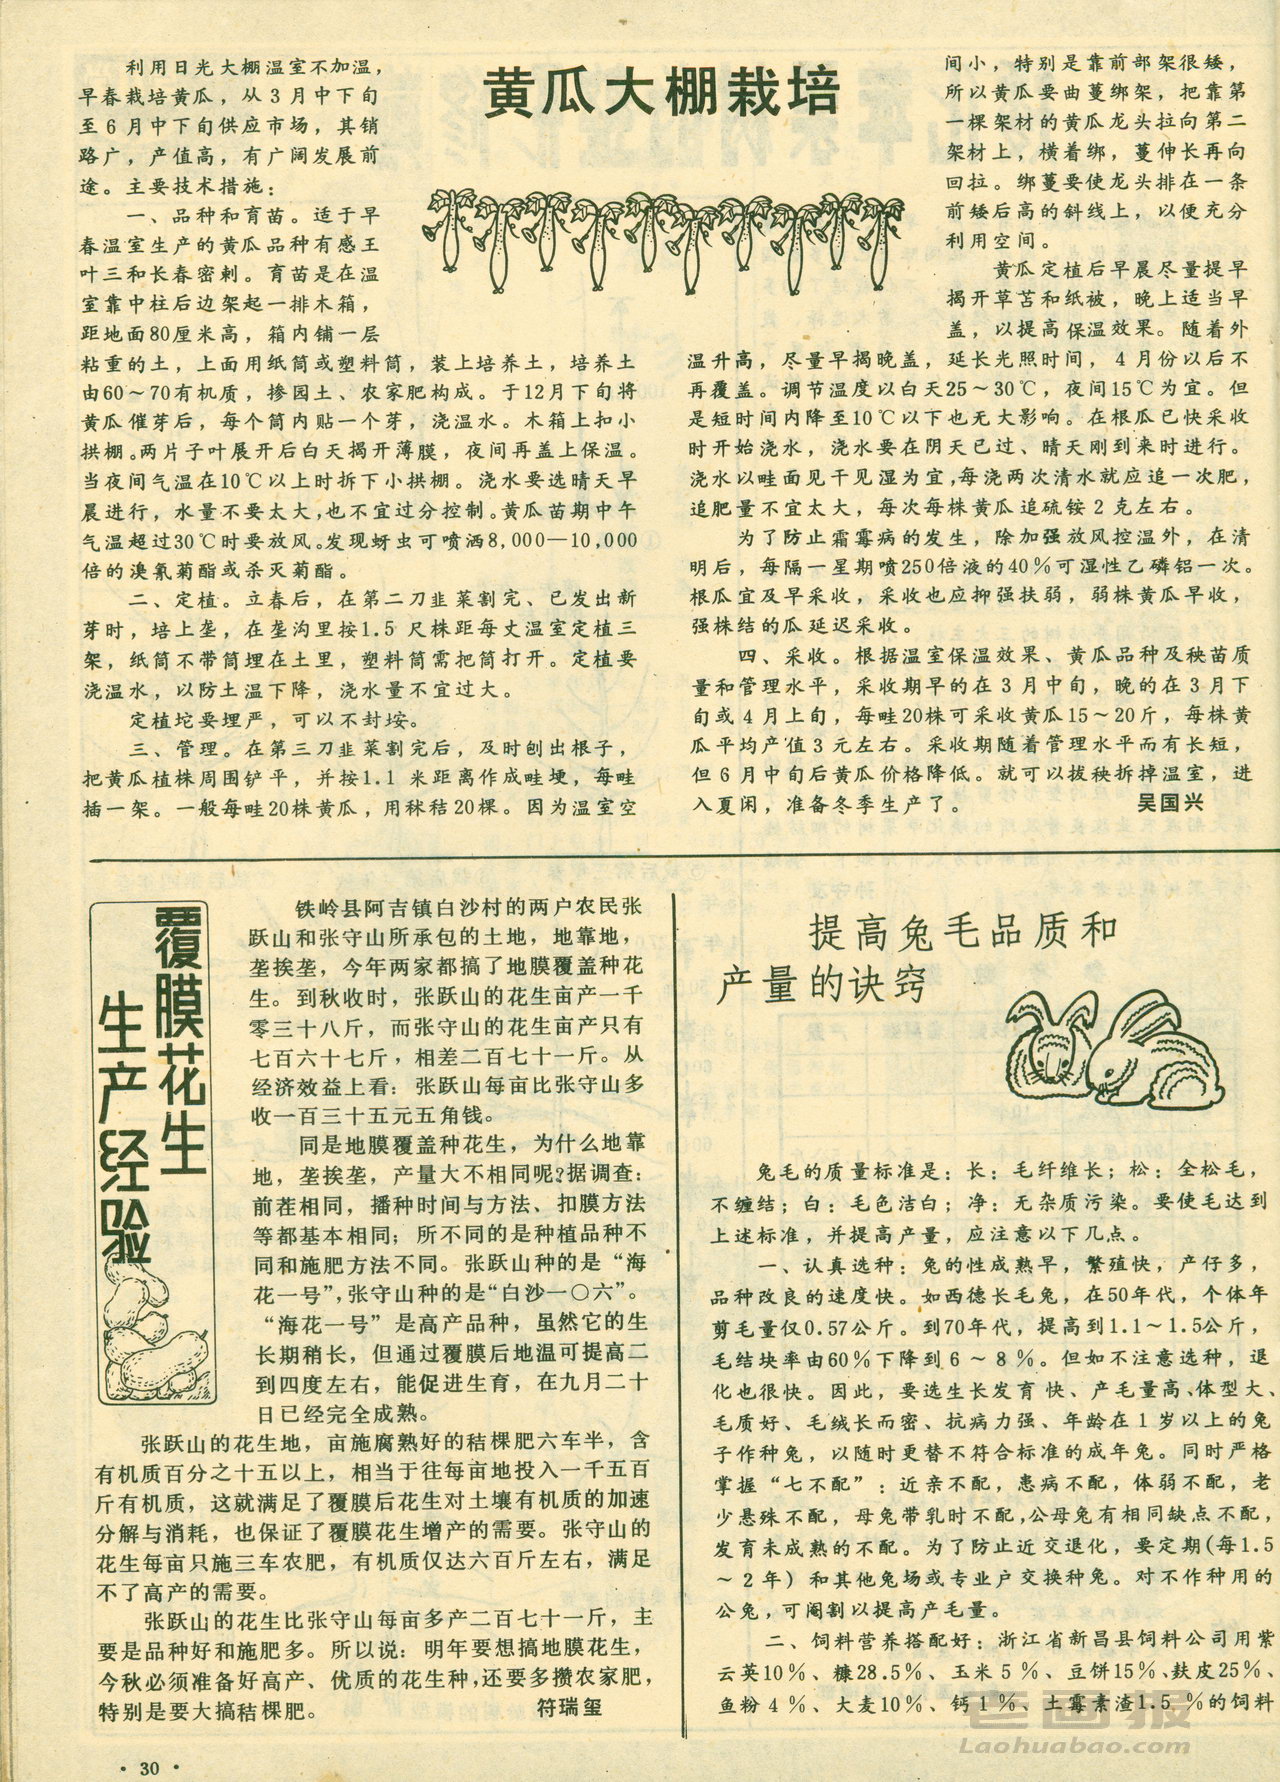 黄瓜大棚栽培
利用日光大棚温室不加温，
早春栽培黄瓜，从3月中下旬
至6月中下旬供应市场，其销
路广，产值高，有广阔发展前
途。主要技术措施：
一、品种和育苗。适于早
春温室生产的黄瓜品种有感王
叶三和长春密刺。育苗是在温
室靠中柱后边架起一排木箱，
距地面80厘米高，箱内铺一层
粘重的土，上面用纸筒或塑料筒，装上培养土，培养土
由60～70有机质，掺园土、农家肥构成。于12月下旬将
黄瓜催芽后，每个筒内贴一个芽，浇温水。木箱上扣小
拱棚。两片子叶展开后白天揭开薄膜，夜间再盖上保温。
当夜间气温在10℃以上时拆下小拱棚。浇水要选晴天早
晨进行，水量不要太大，也不宜过分控制。黄瓜苗期中午
气温超过30℃时要放风。发现蚜虫可喷洒8,000—10,000
倍的溴氰菊酯或杀灭菊酯。
二、定植。立春后，在第二刀韭菜割完、已发出新
芽时，培上垄，在垄沟里按1.5 尺株距每丈温室定植三
架，纸筒不带筒埋在土里，塑料筒需把筒打开。定植要
浇温水，以防土温下降，浇水量不宜过大。
定植坨要埋严，可以不封垵。
三、管理。在第三刀韭菜割完后，及时刨出根子，
把黄瓜植株周围铲平，并按1.1 米距离作成畦埂，每畦
插一架。一般每畦20株黄瓜，用秫秸20棵。因为温室空
间小，特别是靠前部架很矮，
所以黄瓜要曲蔓绑架，把靠第
一棵架材的黄瓜龙头拉向第二
架材上，横着绑，蔓伸长再向
回拉。绑蔓要使龙头排在一条
前矮后高的斜线上，以便充分
利用空间。
黄瓜定植后早晨尽量提早
揭开草苫和纸被，晚上适当早
盖，以提高保温效果。随着外
温升高，尽量早揭晚盖，延长光照时间，4月份以后不
再覆盖。调节温度以白天25～30℃，夜间15℃为宜。但
是短时间内降至10℃以下也无大影响。在根瓜已快采收
时开始浇水，浇水要在阴天已过、晴天刚到来时进行。
浇水以畦面见干见湿为宜，每浇两次清水就应追一次肥，
追肥量不宜太大，每次每株黄瓜追硫铵2克左右。
为了防止霜霉病的发生，除加强放风控温外，在清
明后，每隔一星期喷250倍液的40％可湿性乙磷铝一次。
根瓜宜及早采收，采收也应抑强扶弱，弱株黄瓜早收，
强株结的瓜延迟采收。
四、采收。根据温室保温效果、黄瓜品种及秧苗质
量和管理水平，采收期早的在3月中旬，晚的在3月下
旬或4月上旬，每畦20株可采收黄瓜15～20斤，每株黄
瓜平均产值3元左右。采收期随着管理水平而有长短，
但6月中旬后黄瓜价格降低。就可以拔秧拆掉温室，进
入夏闲，准备冬季生产了。 吴国兴
覆膜花生
生产经验
铁岭县阿吉镇白沙村的两户农民张
跃山和张守山所承包的土地，地靠地，
垄挨垄，今年两家都搞了地膜覆盖种花
生。到秋收时，张跃山的花生亩产一千
零三十八斤，而张守山的花生亩产只有
七百六十七斤，相差二百七十一斤。从
经济效益上看：张跃山每亩比张守山多
收一百三十五元五角钱。
同是地膜覆盖种花生，为什么地靠
地，垄挨垄，产量大不相同呢？据调查：
前茬相同，播种时间与方法、扣膜方法
等都基本相同；所不同的是种植品种不
同和施肥方法不同。张跃山种的是“海
花一号”，张守山种的是“白沙一〇六”。
“海花一号”是高产品种，虽然它的生
长期稍长，但通过覆膜后地温可提高二
到四度左右，能促进生育，在九月二十
日已经完全成熟。
张跃山的花生地，亩施腐熟好的秸棵肥六车半，含
有机质百分之十五以上，相当于往每亩地投入一千五百
斤有机质，这就满足了覆膜后花生对土壤有机质的加速
分解与消耗，也保证了覆膜花生增产的需要。张守山的
花生每亩只施三车农肥，有机质仅达六百斤左右，满足
不了高产的需要。
张跃山的花生比张守山每亩多产二百七十一斤，主
要是品种好和施肥多。所以说：明年要想搞地膜花生，
今秋必须准备好高产、优质的花生种，还要多攒农家肥，
特别是要大搞秸棵肥。 符瑞玺
提高兔毛品质和
产量的诀窍
兔毛的质量标准是：长：毛纤维长；松：全松毛，
不缠结；白：毛色洁白；净：无杂质污染。要使毛达到
上述标准，并提高产量，应注意以下几点。
一、认真选种：兔的性成熟早，繁殖快，产仔多，
品种改良的速度快。如西德长毛兔，在50年代，个体年
剪毛量仅0.57公斤。到70年代，提高到1.1～1.5公斤，
毛结块率由60％下降到6～8％。但如不注意选种，退
化也很快。因此，要选生长发育快、产毛量高、体型大、
毛质好、毛绒长而密、抗病力强、年龄在1岁以上的兔
子作种兔，以随时更替不符合标准的成年兔。同时严格
掌握“七不配”：近亲不配，患病不配，体弱不配，老
少悬殊不配，母兔带乳时不配，公母兔有相同缺点不配，
发育未成熟的不配。为了防止近交退化，要定期(每1.5
～2年) 和其他兔场或专业户交换种兔。对不作种用的
公兔，可阉割以提高产毛量。
二、饲料营养搭配好：浙江省新昌县饲料公司用紫
云英10％、糠28.5％、玉米5％、豆饼15％、麸皮25％、
鱼粉4％、大麦10％、钙1％、土霉素渣1.5％的饲料
·30·
老画报
Laohuabao.com